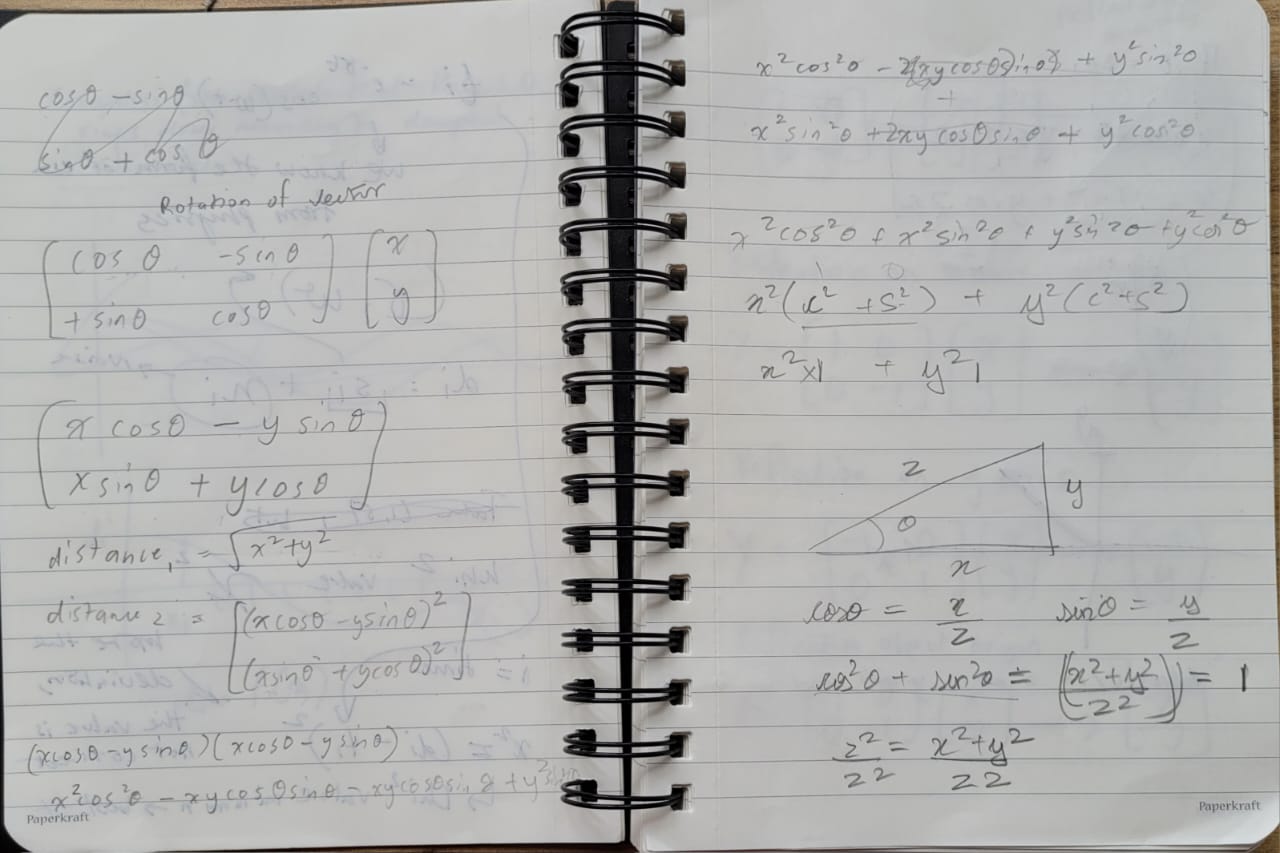 cosθ − sinθ
sinθ + cos θ
Rotation of vector
[ cos θ −sinθ ] [ x ]
[ + sinθ cosθ ] [ y ]
[ x cosθ − y sinθ ]
[ x sinθ + y cosθ ]
distance, = √x²+y²
distance 2 = [ (x cosθ − y sinθ)² ]
[ (x sinθ + y cosθ)² ]
(x cosθ − y sinθ)(x cosθ − y sinθ)
x² cos²θ − xy cosθ sinθ − xy cosθ sinθ + y²
Paperkraft
x² cos²θ − 2(xy cosθ sinθ) + y² sin²θ
+
x² sin²θ + 2xy cosθ sinθ + y² cos²θ
x² cos²θ + x² sin²θ + y² sin²θ + y² cos²θ
x²(c² + s²) + y²(c² + s²)
x²×1 + y² 1
z
y
θ
x
cosθ = x/z sinθ = y/z
cos²θ + sin²θ = ((x²+y²)/z²) = 1
z²/z² = (x²+y²)/z2
Paperkraft